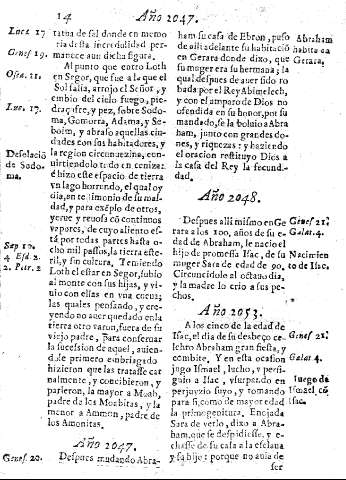 14
Año 2047.
Luce 17
Genes 19.
Osea. 11.
Luc. 17.
Desolació
de Sodo-
ma.
Sap 10.
4 Esd. 2.
2. Petr. 2
Genes. 20.
tatua de sal donde en memo
ria desta incredulidad per-
manece aun dicha figura.
Al punto entro Loth
en Segor, que fue a la que el
Sol salia, arrojo el Señor, y
embio del cielo fuego, pie-
dra çufre, y pez, sobre Sodo-
ma, Gomorra, Adama, y Se-
boim, y abraso aquellas ciu-
dades con sus habitadores, y
la region circunuezina, con-
uirtiendolo todo en ceniza:
é hizo este espacio de tierra
vn lago horrendo, el qual oy
dia, en testimonio de su mal-
dad, y para exéplo de otros,
yerue y reuosa cō continuos
vapores, de cuyo aliento es-
tà por todas partes hasta o-
cho mil passos, la tierra este-
ril, y sin cultura. Temiendo
Loth el estar en Segor, subio
al monte con sus hijas, y vi-
uio con ellas en vna cueua;
las quales pensando, y cre-
yendo no auer quedado en la
tierra otro varon, fuera de su
viejo padre, para conseruar
la sucession de aquel, auien-
dole primero embriagado
hizieron que las tratasse car
nalmente, y concibieron, y
parieron, la mayor a Moab,
padre de los Moabitas, y la
menor a Ammon, padre de
los Amonitas.
Año 2047.
Despues mudando Abra-
ham su casa de Ebron, puso
de alli adelante su habitació
en Gerara donde dixo, que
su muger era su hermana; la
qual despues de auer sido ro
bada por el Rey Abimelech,
y con el amparo de Dios no
ofendida en su honor, por su
mandado, se la boluio a Abra
ham, junto con grandes do-
nes, y riquezas: y haziendo
el oracion restituyo Dios a
la casa del Rey la fecundi-
dad.
Año 2048.
Despues alli mismo en Ge
rara a los 100, años de su e-
dad de Abraham, le nacio el
hijo de promessa Isac, de su
muger Sara de edad de 90.
Circuncidole al octauo dia,
y la madre lo crio a sus pe-
chos.
Año 2053.
A los cinco de la edad de
Isac, el dia de su desbeço ce-
lebro Abraham gran fiesta, y
combite. Y en esta ocasion
jugo Ismael, lucho, y persi-
guio a Isac, vsurpando en
perjuyzio suyo, y tomando
para si, como de mayor edad
la primogenitura. Enojada
Sara de verlo, dixo a Abra-
ham, que se despidiesse, y e-
chasse de su casa a la esclaua
y su hijo: porque no auia de
ser
Abraham
habita en
Gerara.
Genes 21.
Galat. 4.
Nacimien
to de Isac.
Genes 21.
Galat 4.
Iuego de
Ismael cō
Isac.